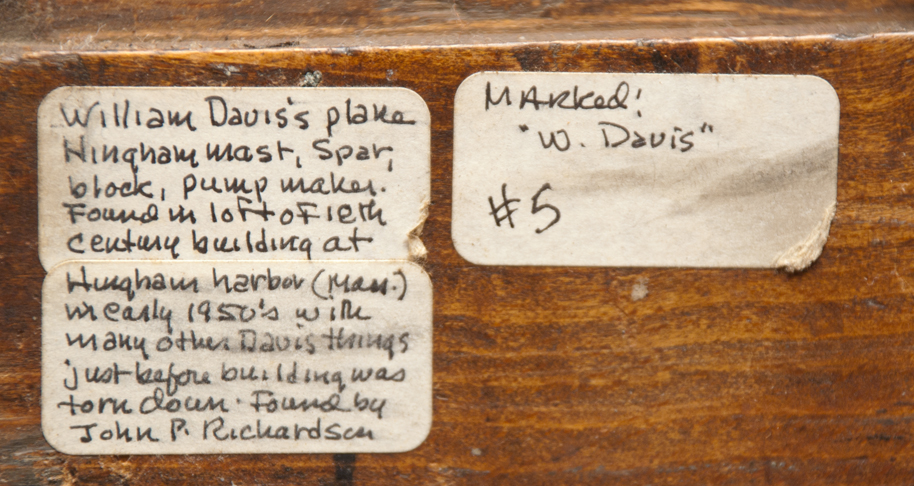 William Davis's plane
Hingham mast, spar,
block, pump maker.
Found in loft of 18th
century building at
Hingham harbor (Mass.)
in early 1950's with
many other Davis things
just before building was
torn down. Found by
John P. Richardson
MARked:
"W. Davis"
#5